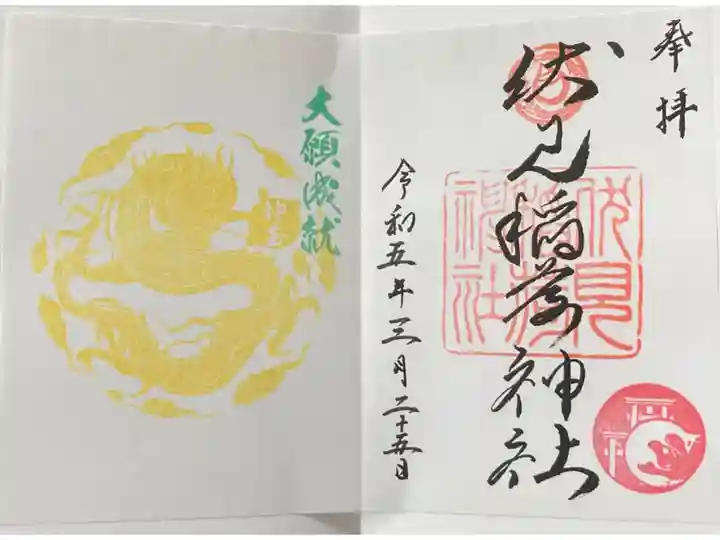 奉拝
伏見稲荷神社
令和五年三月二十五日
伏見
稲荷
神社
大願成就